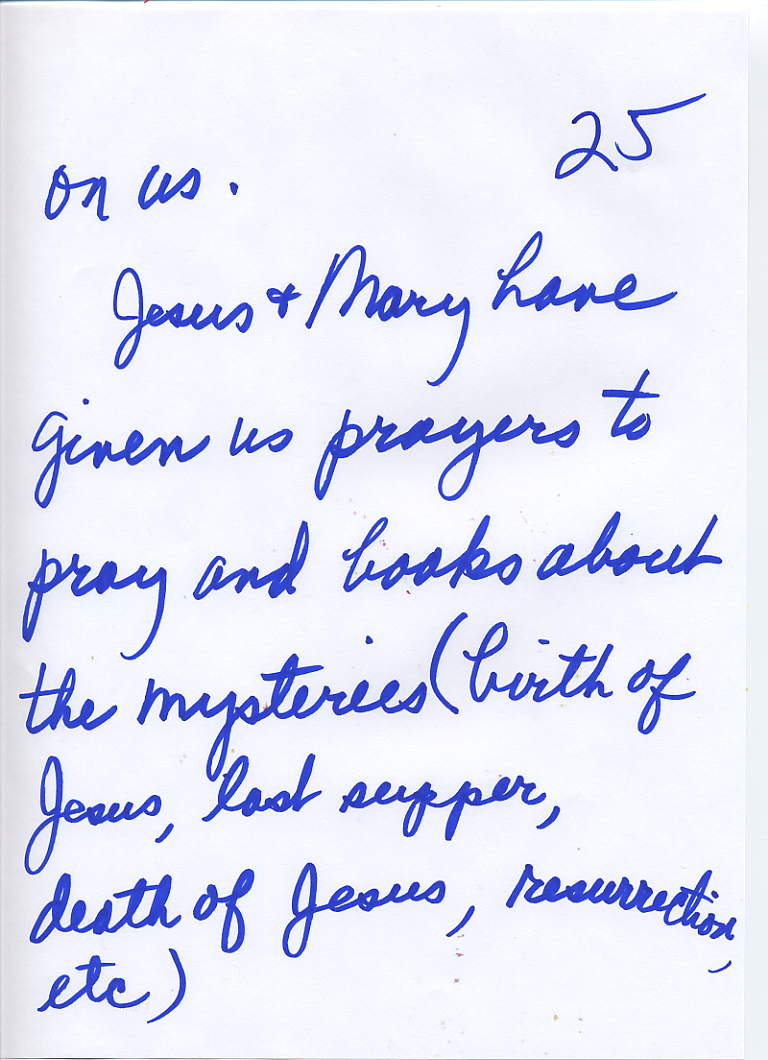 25
on us.
Jesus + Mary have
given us prayers to
pray and books about
the mysteries (birth of
Jesus, last supper,
death of Jesus, resurrection,
etc)